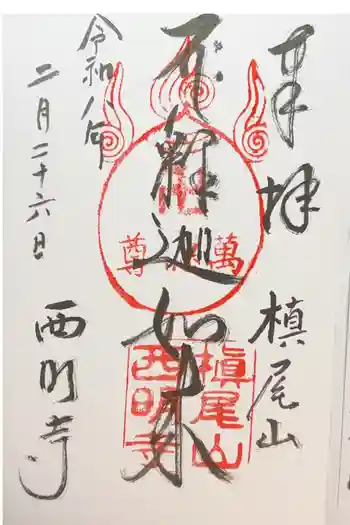 奉拝
槙尾山
釈迦如来
萬
尊
槙尾山
西明寺
令和八年
二月二十六日
西明寺